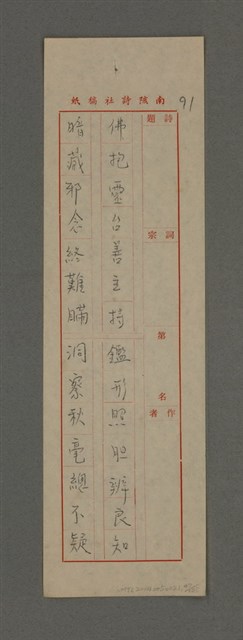 91
南陔詩社稿紙
詩題
詞宗
第名
作者
佛抱靈台善主持鑑形照胆辨良知
暗藏邪念終難瞞洞察秋毫總不疑